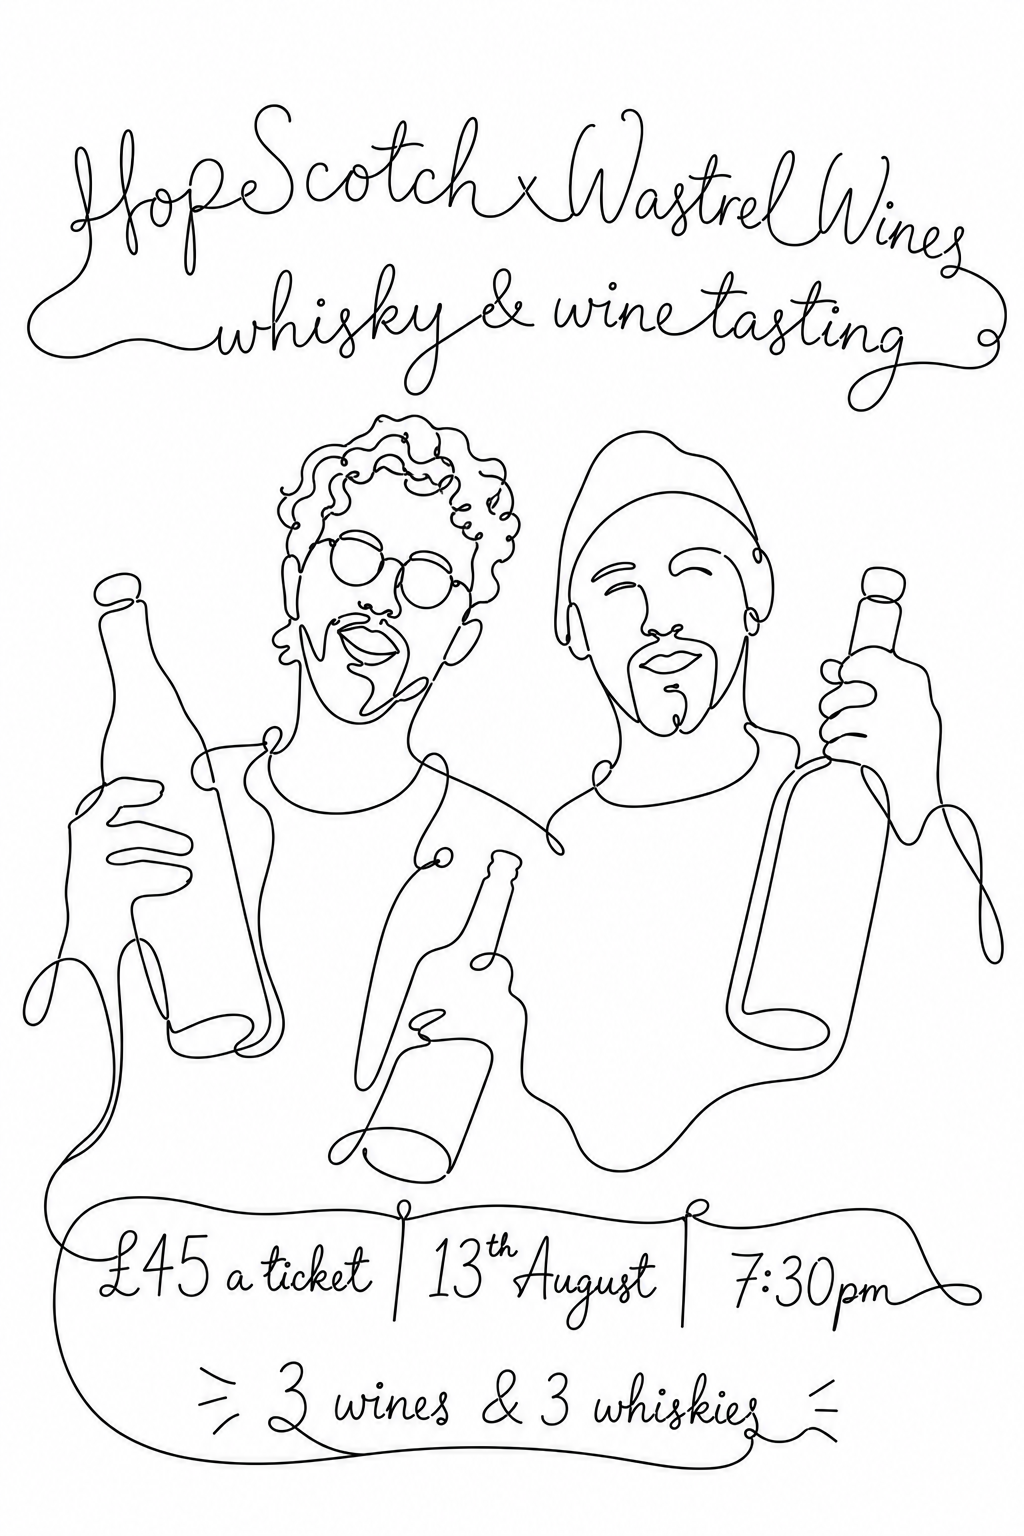 HopScotch x Wastrel Wines
whisky & wine tasting
£45 a ticket | 13th August | 7:30pm
3 wines & 3 whiskies